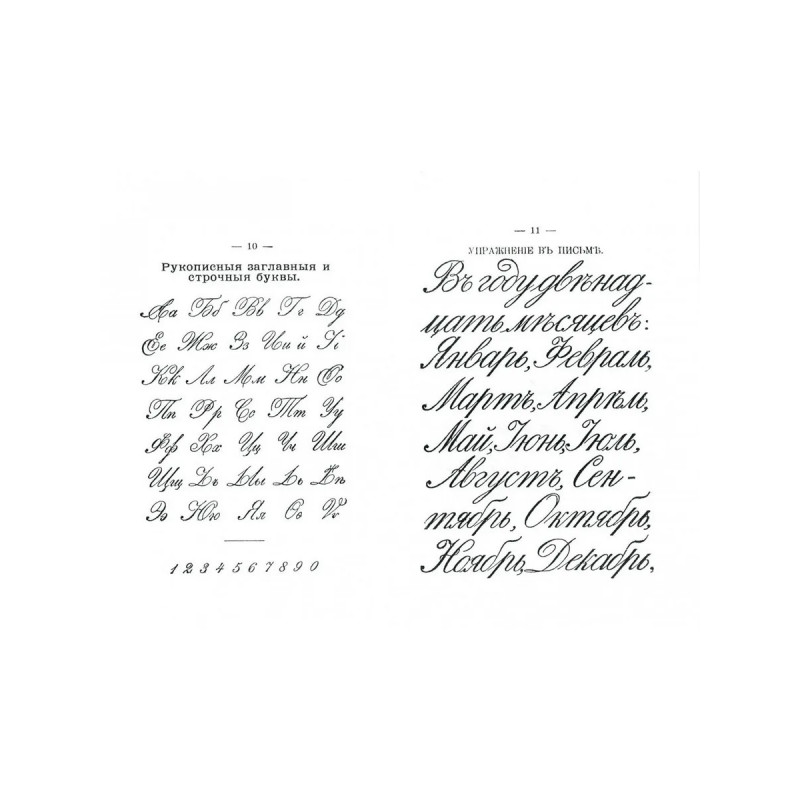 — 10 —
Рукописныя заглавныя и
строчныя буквы.
Аа Бб Вв Гг Дд
Ее Жж Зз Ии й Іі
Кк Лл Мм Нн Оо
Пп Рр Сс Тт Уу
Фф Хх Цц Чч Шш
Щщ Ъъ Ыы Ьь Ѣѣ
Ээ Юю Яя Ѳѳ Ѵѵ
1 2 3 4 5 6 7 8 9 0
— 11 —
УПРАЖНЕНІЕ ВЪ ПИСЬМѢ.
Въ году двѣнад-
цать мѣсяцевъ:
Январь, Февраль,
Мартъ, Апрѣль,
Май, Іюнь, Іюль,
Августъ, Сен-
тябрь, Октябрь,
Ноябрь, Декабрь,